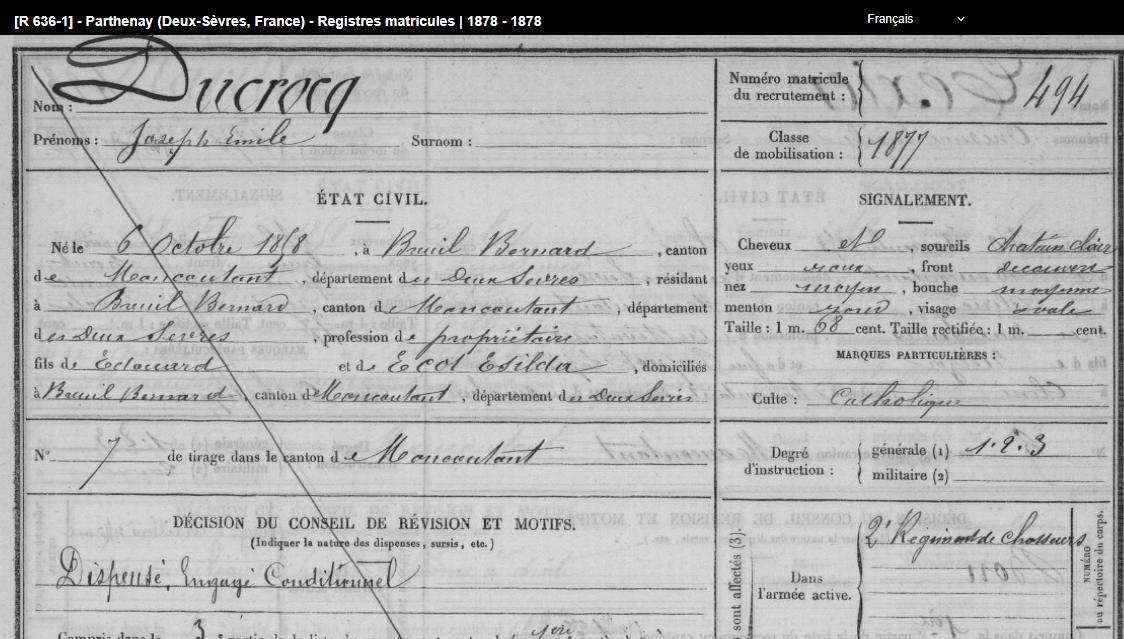 [R 636-1] - Parthenay (Deux-Sèvres, France) - Registres matricules | 1878 - 1878
Français
Nom : Ducrocq
Prénoms : Joseph Emile Surnom :
Numéro matricule du recrutement : 494
Classe de mobilisation : 1877
ÉTAT CIVIL.
Né le 6 Octobre 1858, à Breuil Bernard, canton
de Moncoutant, département des Deux Sèvres, résidant
à Breuil Bernard, canton de Moncoutant, département
des Deux Sevres, profession de propriétaire
fils de Edouard et de Ecot Esilda, domiciliés
à Breuil Bernard, canton de Moncoutant, département des Deux Sevres
SIGNALEMENT.
Cheveux et, sourcils chatain clair
yeux roux, front decouvert
nez moyen, bouche moyenne
menton rond, visage ovale
Taille : 1 m. 68 cent. Taille rectifiée : 1 m. cent.
MARQUES PARTICULIÈRES :
Culte : Catholique
N° 7 de tirage dans le canton de Moncoutant
Degré d'instruction :
générale (1) 1.2.3
militaire (2)
DÉCISION DU CONSEIL DE RÉVISION ET MOTIFS.
(Indiquer la nature des dispenses, sursis, etc.)
Dispensé, Engagé Conditionnel
Compris dans la 3
sont affectés (3) :
Dans l'armée active.
2e Regiment de Chasseurs
NUMÉRO
au répertoire du corps.